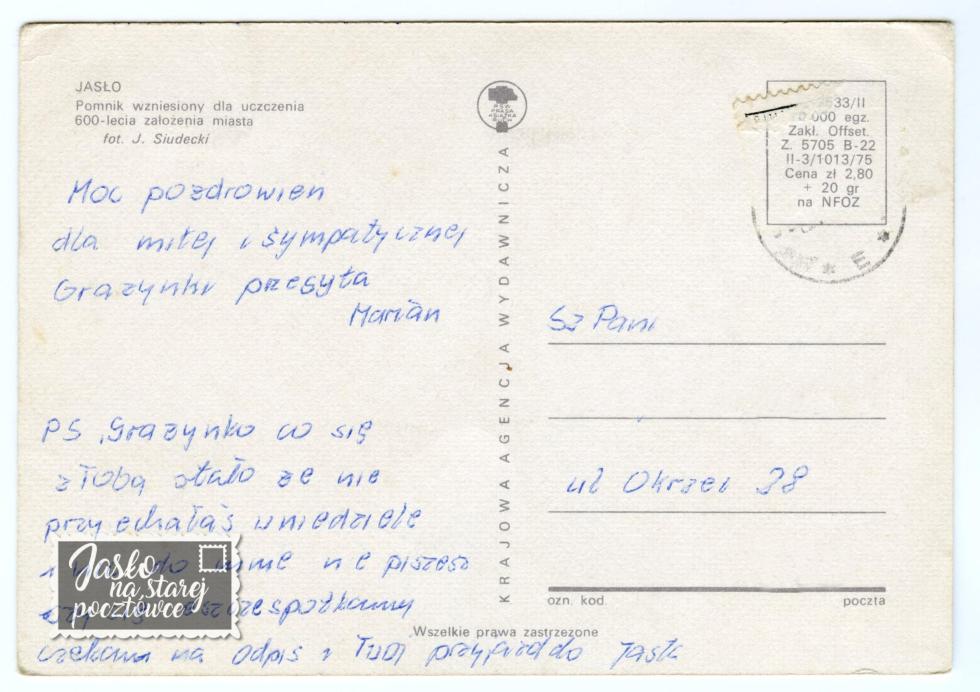 JASŁO
Pomnik wzniesiony dla uczczenia
600-lecia założenia miasta
fot. J. Siudecki
Moc pozdrowien
dla miłej i sympatycznej
Grazynki przesyła
Marian
PS. Grazynko co się
złobą stało ze nie
przyjechałaś w niedziele
do mnie nie piszesz
czekam na odpis i Twoj przyjazd do Jasła
Jasło
na starej
pocztówce
KRAJOWA AGENCJA WYDAWNICZA
PSW
PRASA
KSIĄŻKA
RUCH
533/II
000 egz.
Zakł. Offset.
Z. 5705 B-22
II-3/1013/75
Cena zł 2,80
+ 20 gr
na NFOZ
Sz Pani
ul Okrzei 38
ozn. kod.
poczta
Wszelkie prawa zastrzeżone